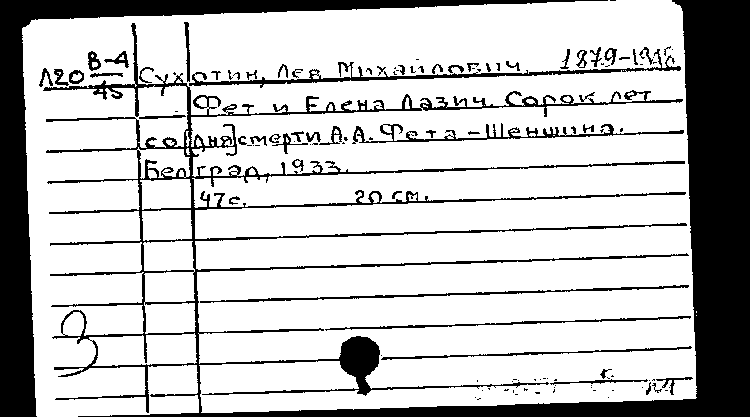 Л20 В-4/45 Сухотин, Лев Михайлович. 1879-1948
Фет и Елена Лазич. Сорок лет
со [дня] смерти А.А. Фета-Шеншина.
Белград, 1933.
47с. 20 см.
3